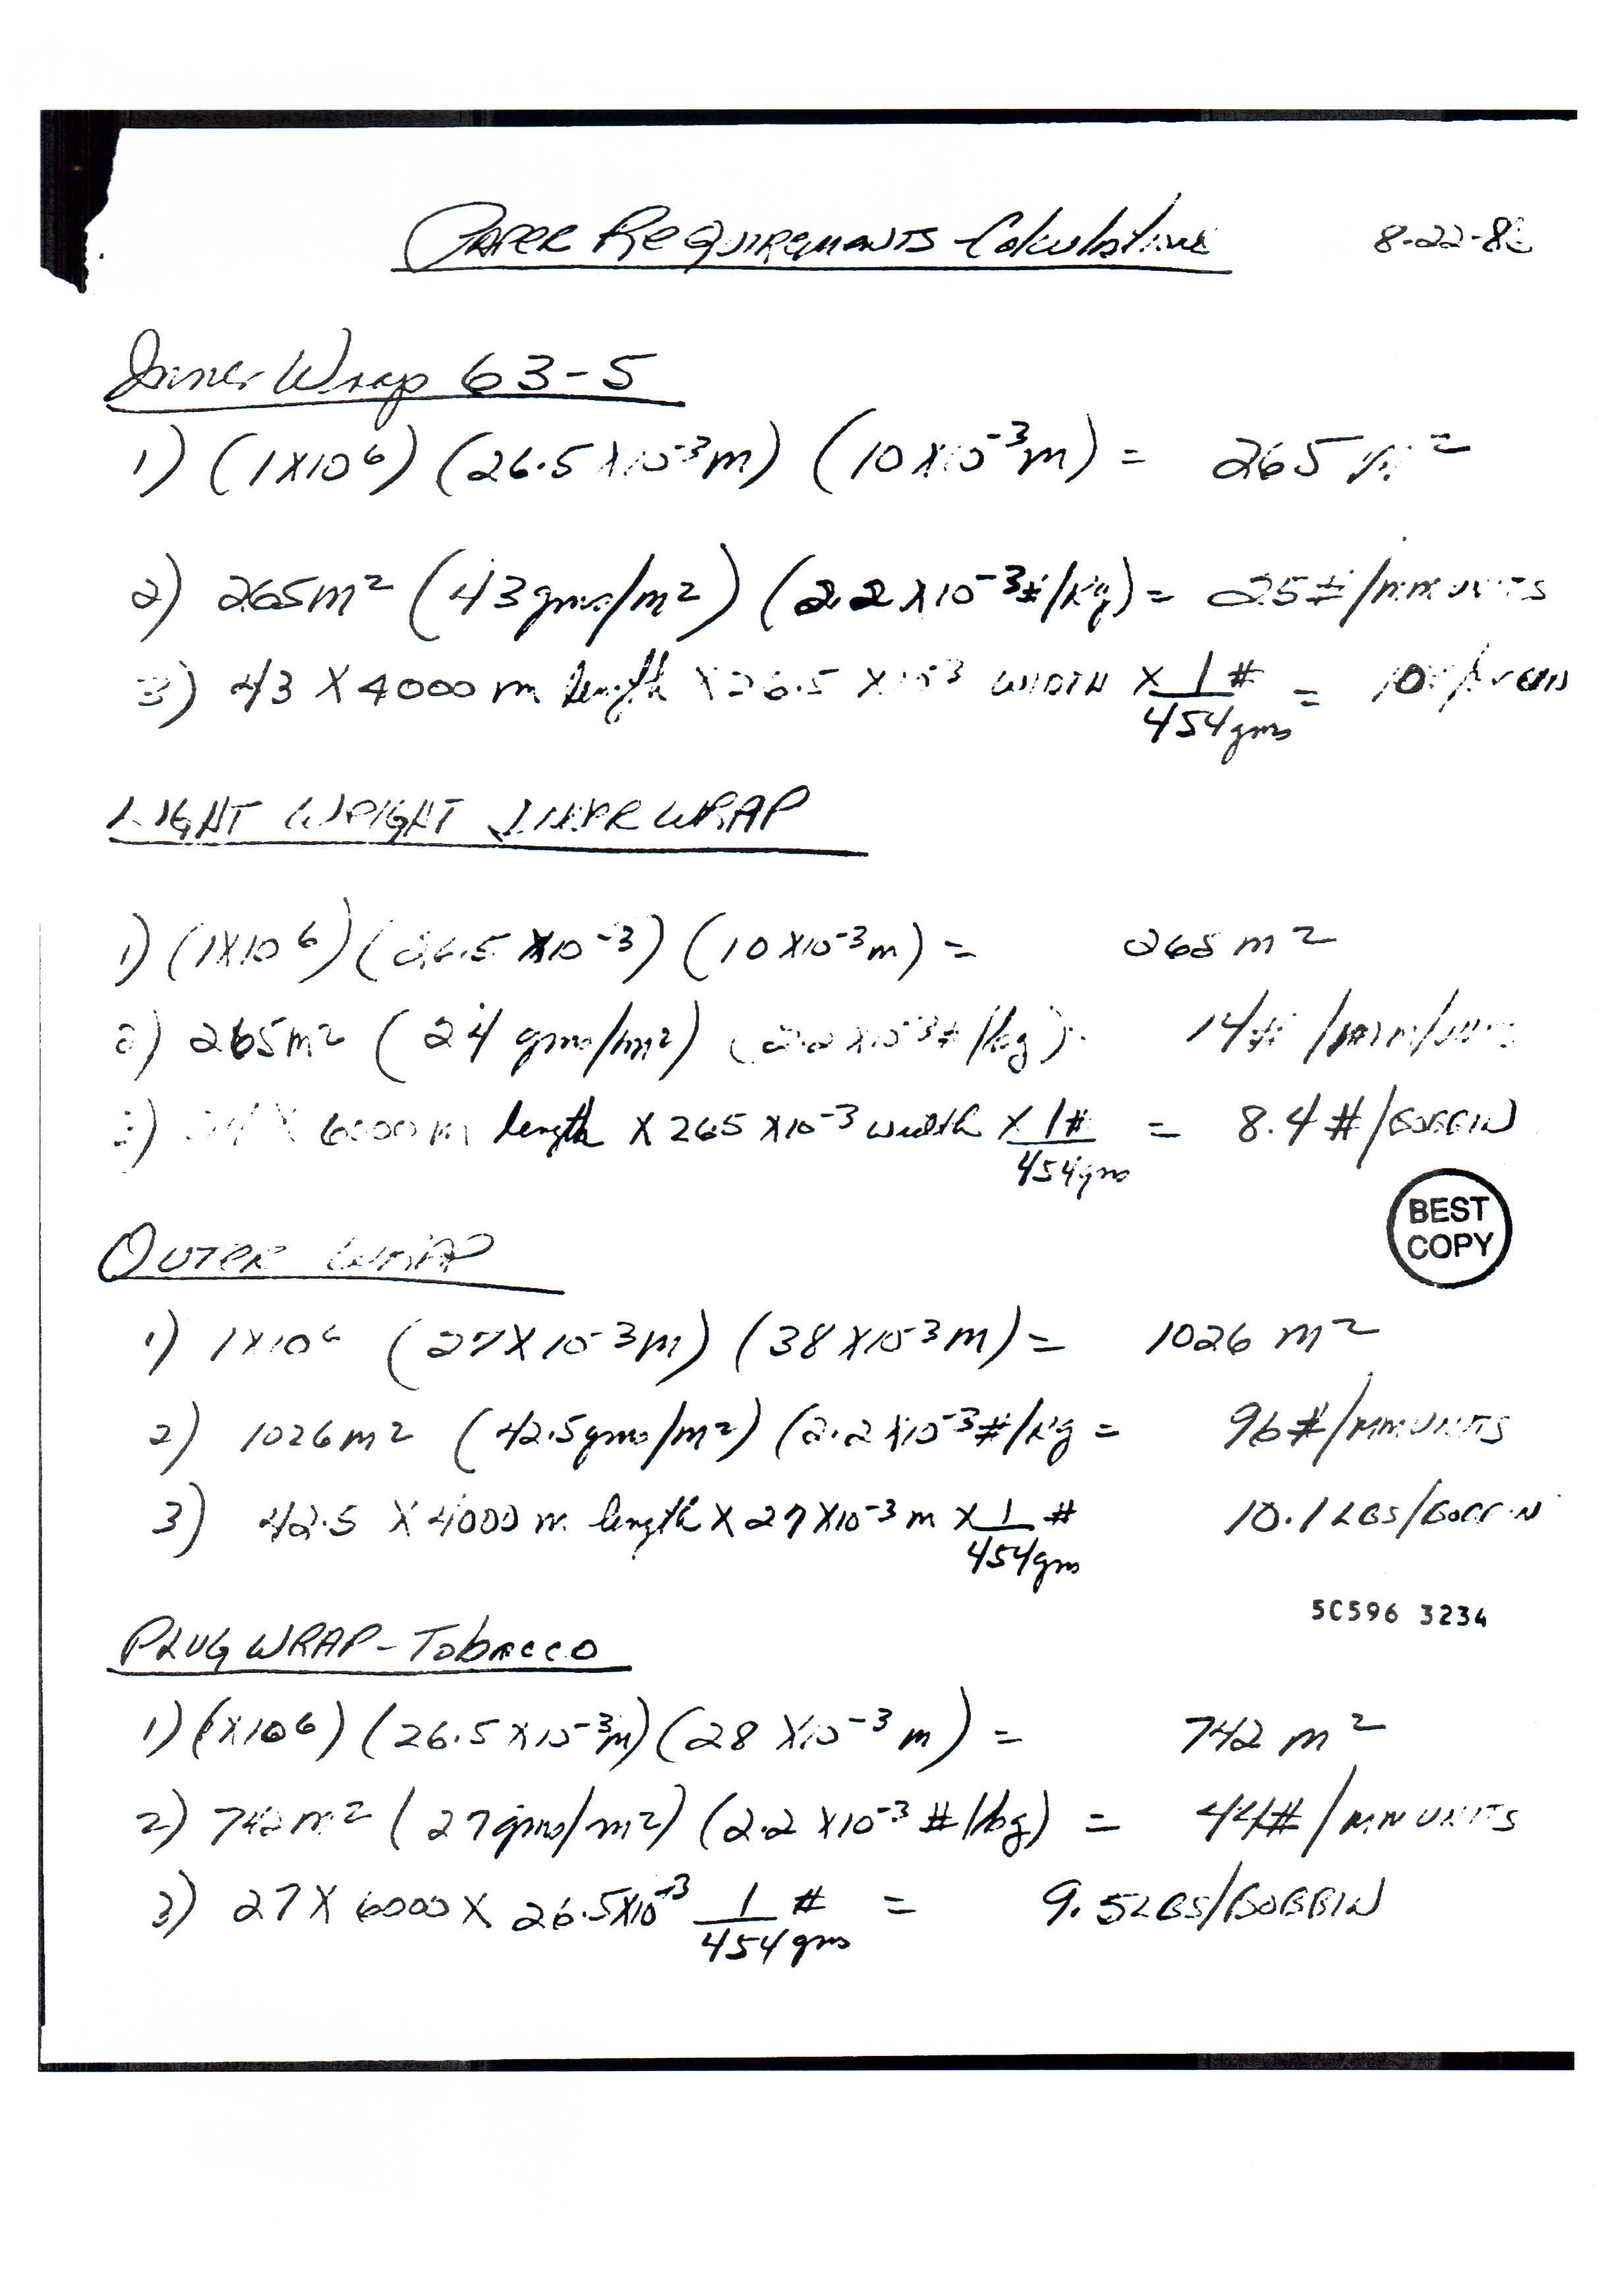 PAPER REQUIREMENTS - Calculations 8-22-8
Inner Wrap 63-5
1) (1X10⁶) (26.5 X10⁻³m) (10 X10⁻³m) = 265 m²
2) 265m² (43gms/m²) (2.2 X10⁻³#/Kg) = 25#/MM UNITS
3) 43 X 4000 m length X 26.5 X10⁻³ WIDTH X 1 #/454gms = 10
LIGHT WEIGHT INNER WRAP
1) (1X10⁶) (26.5 X10⁻³) (10 X10⁻³m) = 265 m²
2) 265m² (24 gms/m²) (2.2 X10⁻³#/kg) 14# /MM/UNITS
3) 24 X 6000 m length X 265 X10⁻³ width X 1#/454gms = 8.4 #/BOBBIN
BEST
COPY
OUTER WRAP
1) 1X10⁶ (27X10⁻³m) (38 X10⁻³m) = 1026 m²
2) 1026m² (42.5gms/m²) (2.2 X10⁻³#/Kg = 96#/MM UNITS
3) 42.5 X 4000 m length X 27X10⁻³ m X 1 #/454gms 10.1 LBS/BOBBIN
5C596 3234
PLUG WRAP - TobAcco
1) (1X10⁶) (26.5 X10⁻³m) (28 X10⁻³ m) = 742 m²
2) 742m² (27gms/m²) (2.2 X10⁻³ #/kg) = 44#/MM UNITS
3) 27 X 6000 X 26.5X10⁻³ 1 #/454 gms = 9.5LBS/BOBBIN